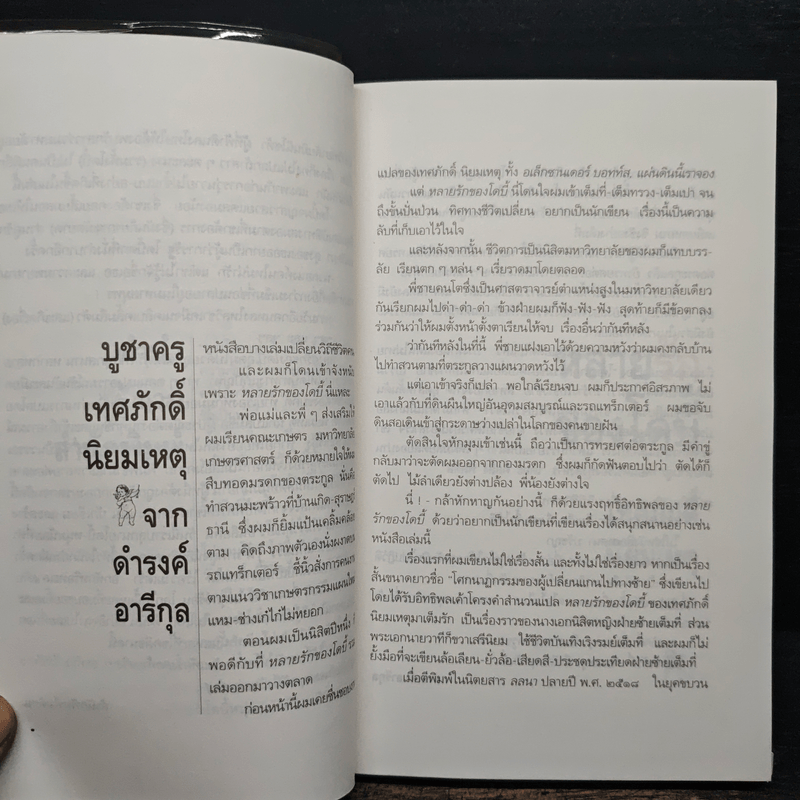 บูชาครู
เทศภักดิ์
นิยมเหตุ
จาก
ดำรงค์
อารีกุล
หนังสือบางเล่มเปลี่ยนวิถีชีวิตคน
และผมก็โดนเข้าจังหนับ
เพราะ หลายรักของโดบี้ นี่แหละ
พ่อแม่และพี่ ๆ ส่งเสริมให้
ผมเรียนคณะเกษตร มหาวิทยาลัย
เกษตรศาสตร์ ก็ด้วยหมายใจให้ผม
สืบทอดมรดกของตระกูล นั่นคือ
ทำสวนมะพร้าวที่บ้านเกิด-สุราษฎร์
ธานี ซึ่งผมก็ยิ้มแป้นเคลิ้มคล้อย
ตาม คิดถึงภาพตัวเองนั่งผงาดบน
รถแทร็กเตอร์ ชี้นิ้วสั่งการคนงาน
ตามแนววิชาเกษตรกรรมแผนใหม่
แหม-ช่างเก๋ไก๋ไม่หยอก
ตอนผมเป็นนิสิตปีหนึ่ง
พอดีกับที่ หลายรักของโดบี้
เล่มออกมาวางตลาด
ก่อนหน้านี้ผมเคยชื่นชอบ
แปลของเทศภักดิ์ นิยมเหตุ ทั้ง อเล็กซานเดอร์ บอทท์ส, แผ่นดินนี้เราจอง
แต่ หลายรักของโดบี้ นี่โดนใจผมเข้าเต็มที่-เต็มทรวง-เต็มเปา จน
ถึงขั้นปั่นป่วน ทิศทางชีวิตเปลี่ยน อยากเป็นนักเขียน เรื่องนี้เป็นความ
ลับที่เก็บเอาไว้ในใจ
และหลังจากนั้น ชีวิตการเป็นนิสิตมหาวิทยาลัยของผมก็แทบบรร-
ลัย เรียนตก ๆ หล่น ๆ เรี่ยราดมาโดยตลอด
พี่ชายคนโตซึ่งเป็นศาสตราจารย์ตำแหน่งสูงในมหาวิทยาลัยเดียว
กันเรียกผมไปด่า-ด่า-ด่า ข้างฝ่ายผมก็ฟัง-ฟัง-ฟัง สุดท้ายก็มีข้อตกลง
ร่วมกันว่าให้ผมตั้งหน้าตั้งตาเรียนให้จบ เรื่องอื่นว่ากันทีหลัง
ว่ากันทีหลังในที่นี้ พี่ชายแฝงเอาไว้ด้วยความหวังว่าผมคงกลับบ้าน
ไปทำสวนตามที่ตระกูลวางแผนวาดหวังไว้
แต่เอาเข้าจริงก็เปล่า พอใกล้เรียนจบ ผมก็ประกาศอิสรภาพ ไม่
เอาแล้วกับที่ดินผืนใหญ่อันอุดมสมบูรณ์และรถแทร็กเตอร์ ผมขอจับ
ดินสอเดินเข้าสู่กระดาษว่างเปล่าในโลกของคนขายฝัน
ตัดสินใจหักมุมเข้าเช่นนี้ ถือว่าเป็นการทรยศต่อตระกูล มีคำขู่
กลับมาว่าจะตัดผมออกจากกองมรดก ซึ่งผมก็กัดฟันตอบไปว่า ตัดได้ก็
ตัดไป ไม้ลำเดียวยังต่างปล้อง พี่น้องยังต่างใจ
นี่ ! - กล้าหักหาญกันอย่างนี้ ก็ด้วยแรงฤทธิ์อิทธิพลของ หลาย
รักของโดบี้ ด้วยว่าอยากเป็นนักเขียนที่เขียนเรื่องได้สนุกสนานอย่างเช่น
หนังสือเล่มนี้
เรื่องแรกที่ผมเขียนไม่ใช่เรื่องสั้น และทั้งไม่ใช่เรื่องยาว หากเป็นเรื่อง
สั้นขนาดยาวชื่อ "โศกนาฏกรรมของผู้เปลี่ยนแกนไปทางซ้าย" ซึ่งเขียนไป
โดยได้รับอิทธิพลเค้าโครงคำสำนวนแปล หลายรักของโดบี้ ของเทศภักดิ์
นิยมเหตุมาเต็มรัก เป็นเรื่องราวของนางเอกนิสิตหญิงฝ่ายซ้ายเต็มที่ ส่วน
พระเอกนายวาทีก็ขวาเสรีนิยม ใช้ชีวิตบันเทิงเริงรมย์เต็มที่ และผมก็ไม่
ยั้งมือที่จะเขียนล้อเลียน-ยั่วล้อ-เสียดสี-ประชดประเทียดฝ่ายซ้ายเต็มที่
เมื่อตีพิมพ์ในนิตยสาร ลลนา ปลายปี พ.ศ. ๒๕๑๘ ในยุคขบวน